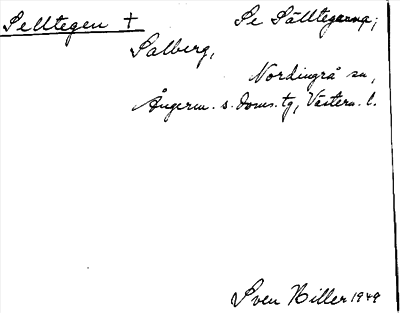 Selltegen + Se Sälltegarna;
Salberg,
Nordingrå sn,
Ångerm. s. doms. tg, Västern. l.
Sven Hiller 1949